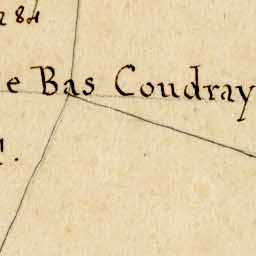 284
e Bas Coudray